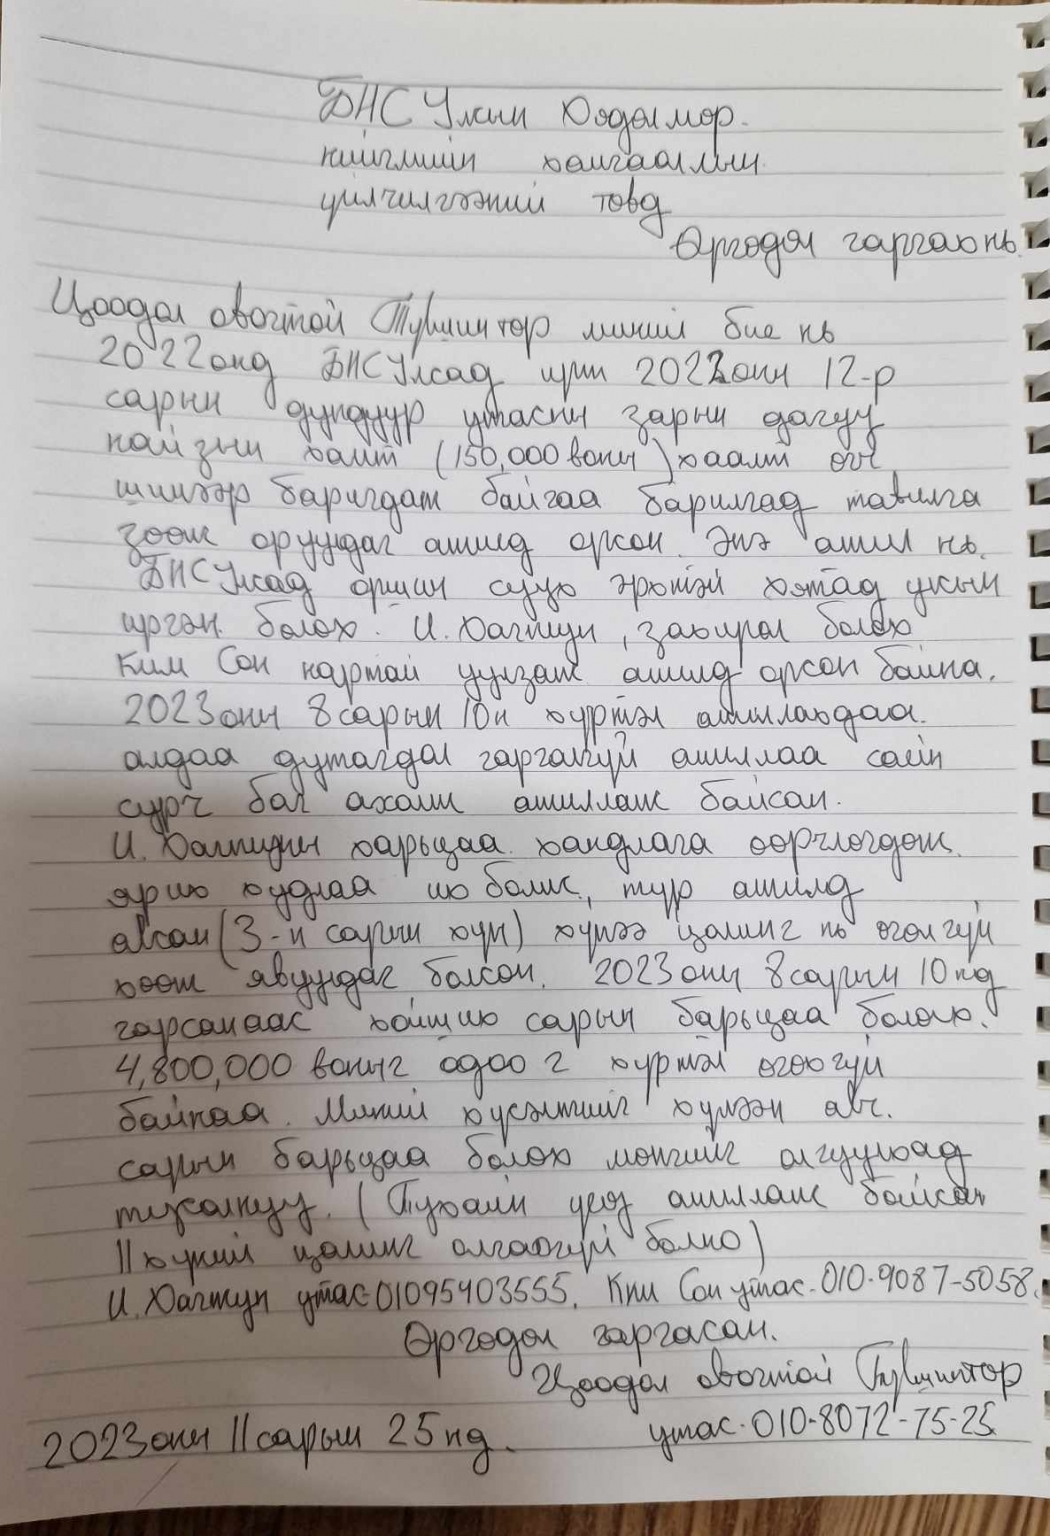 БНСУлсын Хөдөлмөр.
нийгмийн хамгааллын
үйлчилгээний төвд
Өргөдөл гаргах нь.
Цоодол овогтой Түвшинтөр миний бие нь
2022онд БНСУлсад ирж 2022оны 12-р
сарын дундуур утасны зарын дагуу
найзын хамт (150,000 воны) хаалт өгч
шинээр баригдаж байгаа барилгад тавилга
зөөж оруулдаг ажилд орсон. Энэ ажил нь.
БНСУлсад оршин суух эрхтэй хятад улсын
иргэн. болох. И. , захирал болох
Ким Сон нартай уулзаж ажилд орсон байна.
2023оны 8сарын 10н хүртэл ажиллахдаа.
алдаа дутагдал гаргалгүй ажиллаа сайн
сурч баг ахалж ажиллаж байсан.
И. харьцаа хандлага өөрчлөгдөж.
ярих худлаа их болж, түр ажилд
авсан (3-н сарын хүн) хүмээ цалинг нь өгөлгүй
хөөж явуулдаг болсон. 2023оны 8сарын 10нд
гарсанаас хойших сарын барьцаа болох.
4,800,000 воныг одоо г хүртэл өгөөгүй
байнаа. Миний хүсэлтийг хүлээн авч.
сарын барьцаа болох мөнгийг олгуулхад
тусалнуу. (Тухайн үед ажиллаж байсан
11 хүний цалинг олгоогүй болно)
И. утас-01095403555. Ким Сон утас-010-9087-5058.
Өргөдөл гаргасан.
Цоодол овогтой Түвшинтөр
2023оны 11сарын 25нд. утас-010-8072-75-25